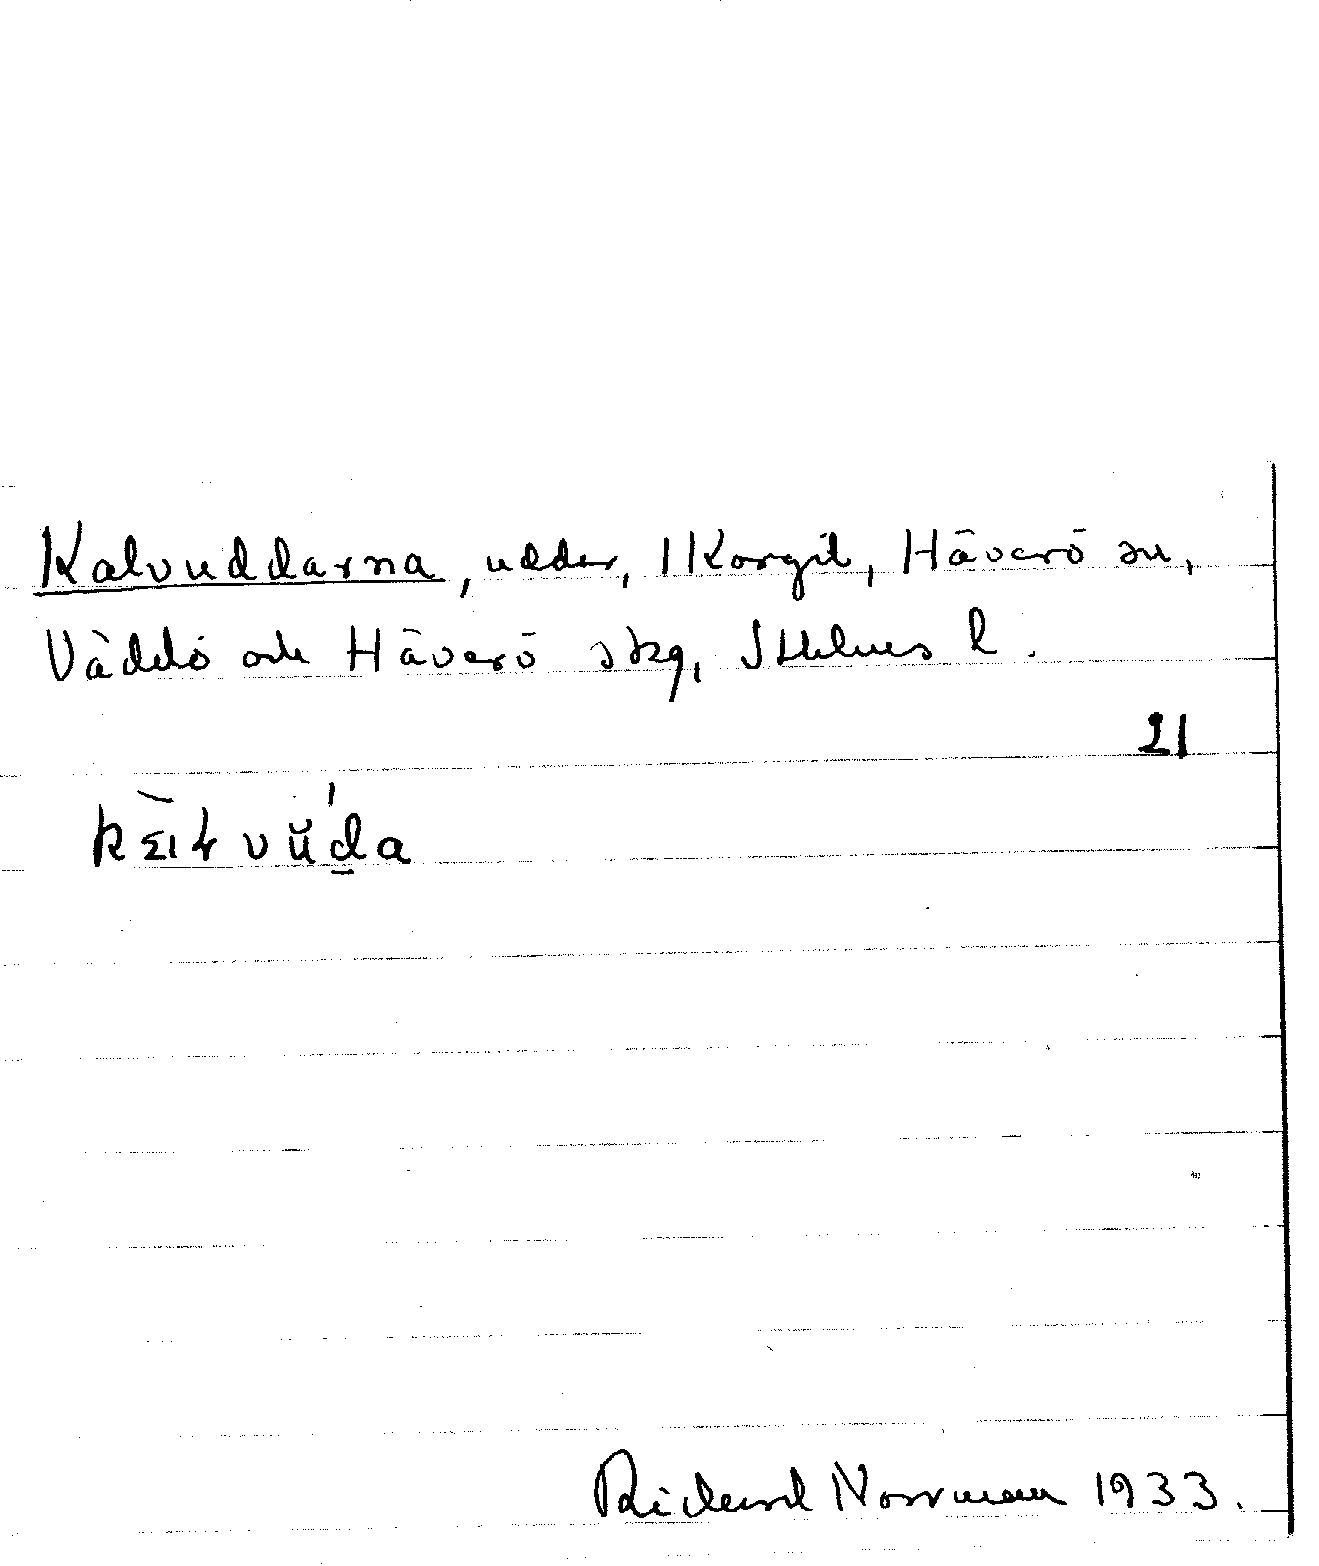 Kalvuddarna, uddar, 1 Korgil, Häverö sn,
Väddö och Häverö skg, Sthlms l.
21
Richard Norrman 1933.